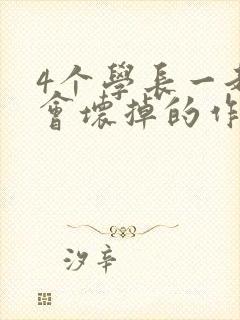 4个學長一
會壞掉的作
汐辛